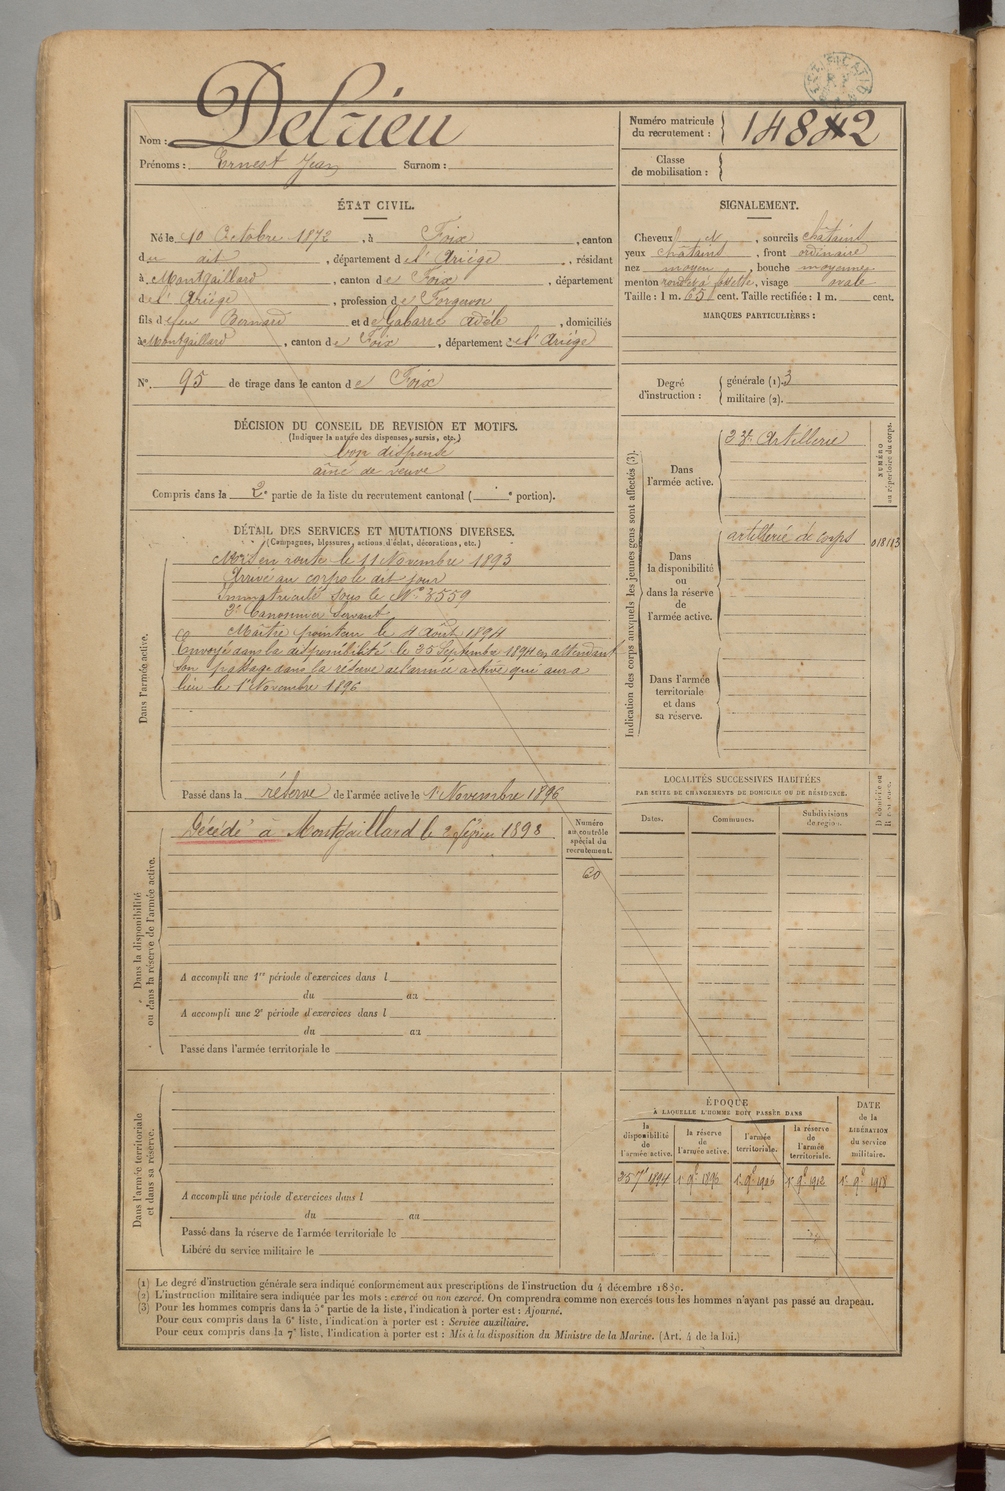 Nom : Delrieu
Prénoms : Ernest Jean Surnom :
Numéro matricule
du recrutement :
Classe
de mobilisation :
ÉTAT CIVIL.
Né le 10 Octobre 1872, à Foix, canton
du dit, département de l'Ariège, résidant
à Montgaillard, canton de Foix, département
de l'Ariège, profession de Forgeron
fils de feu Bernard et de Gabarre Adèle, domiciliés
à Montgaillard, canton de Foix, département de l'Ariège
N° 95 de tirage dans le canton de Foix
DÉCISION DU CONSEIL DE REVISION ET MOTIFS.
(Indiquer la nature des dispenses, sursis, etc.)
bon dispensé
aîné de veuve
Compris dans la 2e partie de la liste du recrutement cantonal ( e portion).
DÉTAIL DES SERVICES ET MUTATIONS DIVERSES.
(Campagnes, blessures, actions d'éclat, décorations, etc.)
Dans l'armée active.
Mis en route le 11 Novembre 1893
Arrivé au corps le dit jour
Immatriculé sous le N° 3559
2e Canonnier Servant
Maître pointeur le 1 Août 1894
Envoyé dans la disponibilité le 25 Septembre 1894 en attendant
son passage dans la réserve de l'armée active qui aura
lieu le 1er Novembre 1896
Passé dans la réserve de l'armée active le 1er Novembre 1896
Dans la disponibilité
ou dans la réserve de l'armée active.
Décédé à Montgaillard le 2 février 1898
Numéro
au contrôle
spécial du
recrutement.
A accompli une 1re période d'exercices dans l
du au
A accompli une 2e période d'exercices dans l
du au
Passé dans l'armée territoriale le
Dans l'armée territoriale
et dans sa réserve.
A accompli une période d'exercices dans l
du au
Passé dans la réserve de l'armée territoriale le
Libéré du service militaire le
SIGNALEMENT.
Cheveux et, sourcils châtains
yeux châtains, front ordinaire
nez moyen, bouche moyenne
menton rond à fossette, visage ovale
Taille : 1 m. 65 cent. Taille rectifiée : 1 m. cent.
MARQUES PARTICULIÈRES :
Degré
d'instruction :
générale (1). 3
militaire (2).
Indication des corps auxquels les jeunes gens sont affectés (3).
NUMÉRO
au répertoire du corps.
Dans
l'armée active.
23e Artillerie
Dans
la disponibilité
ou
dans la réserve
de
l'armée active.
artillerie de corps
Dans l'armée
territoriale
et dans
sa réserve.
LOCALITÉS SUCCESSIVES HABITÉES
PAR SUITE DE CHANGEMENTS DE DOMICILE OU DE RÉSIDENCE.
Dates.
Communes.
Subdivisions
de région.
ÉPOQUE
À LAQUELLE L'HOMME DOIT PASSER DANS
la
disponibilité
de
l'armée active.
la réserve
de
l'armée active.
l'armée
territoriale.
la réserve
de
l'armée
territoriale.
DATE
de la
LIBÉRATION
du service
militaire.
25 7bre 1894 1er 9bre 1896 1er 9bre 1906 1er 9bre 1912 1er 9bre 1918
(1) Le degré d'instruction générale sera indiqué conformément aux prescriptions de l'instruction du 4 décembre 1889.
(2) L'instruction militaire sera indiquée par les mots : exercé ou non exercé. On comprendra comme non exercés tous les hommes n'ayant pas passé au drapeau.
(3) Pour les hommes compris dans la 5e partie de la liste, l'indication à porter est : Ajourné.
Pour ceux compris dans la 6e liste, l'indication à porter est : Service auxiliaire.
Pour ceux compris dans la 7e liste, l'indication à porter est : Mis à la disposition du Ministre de la Marine. (Art. 4 de la loi.)